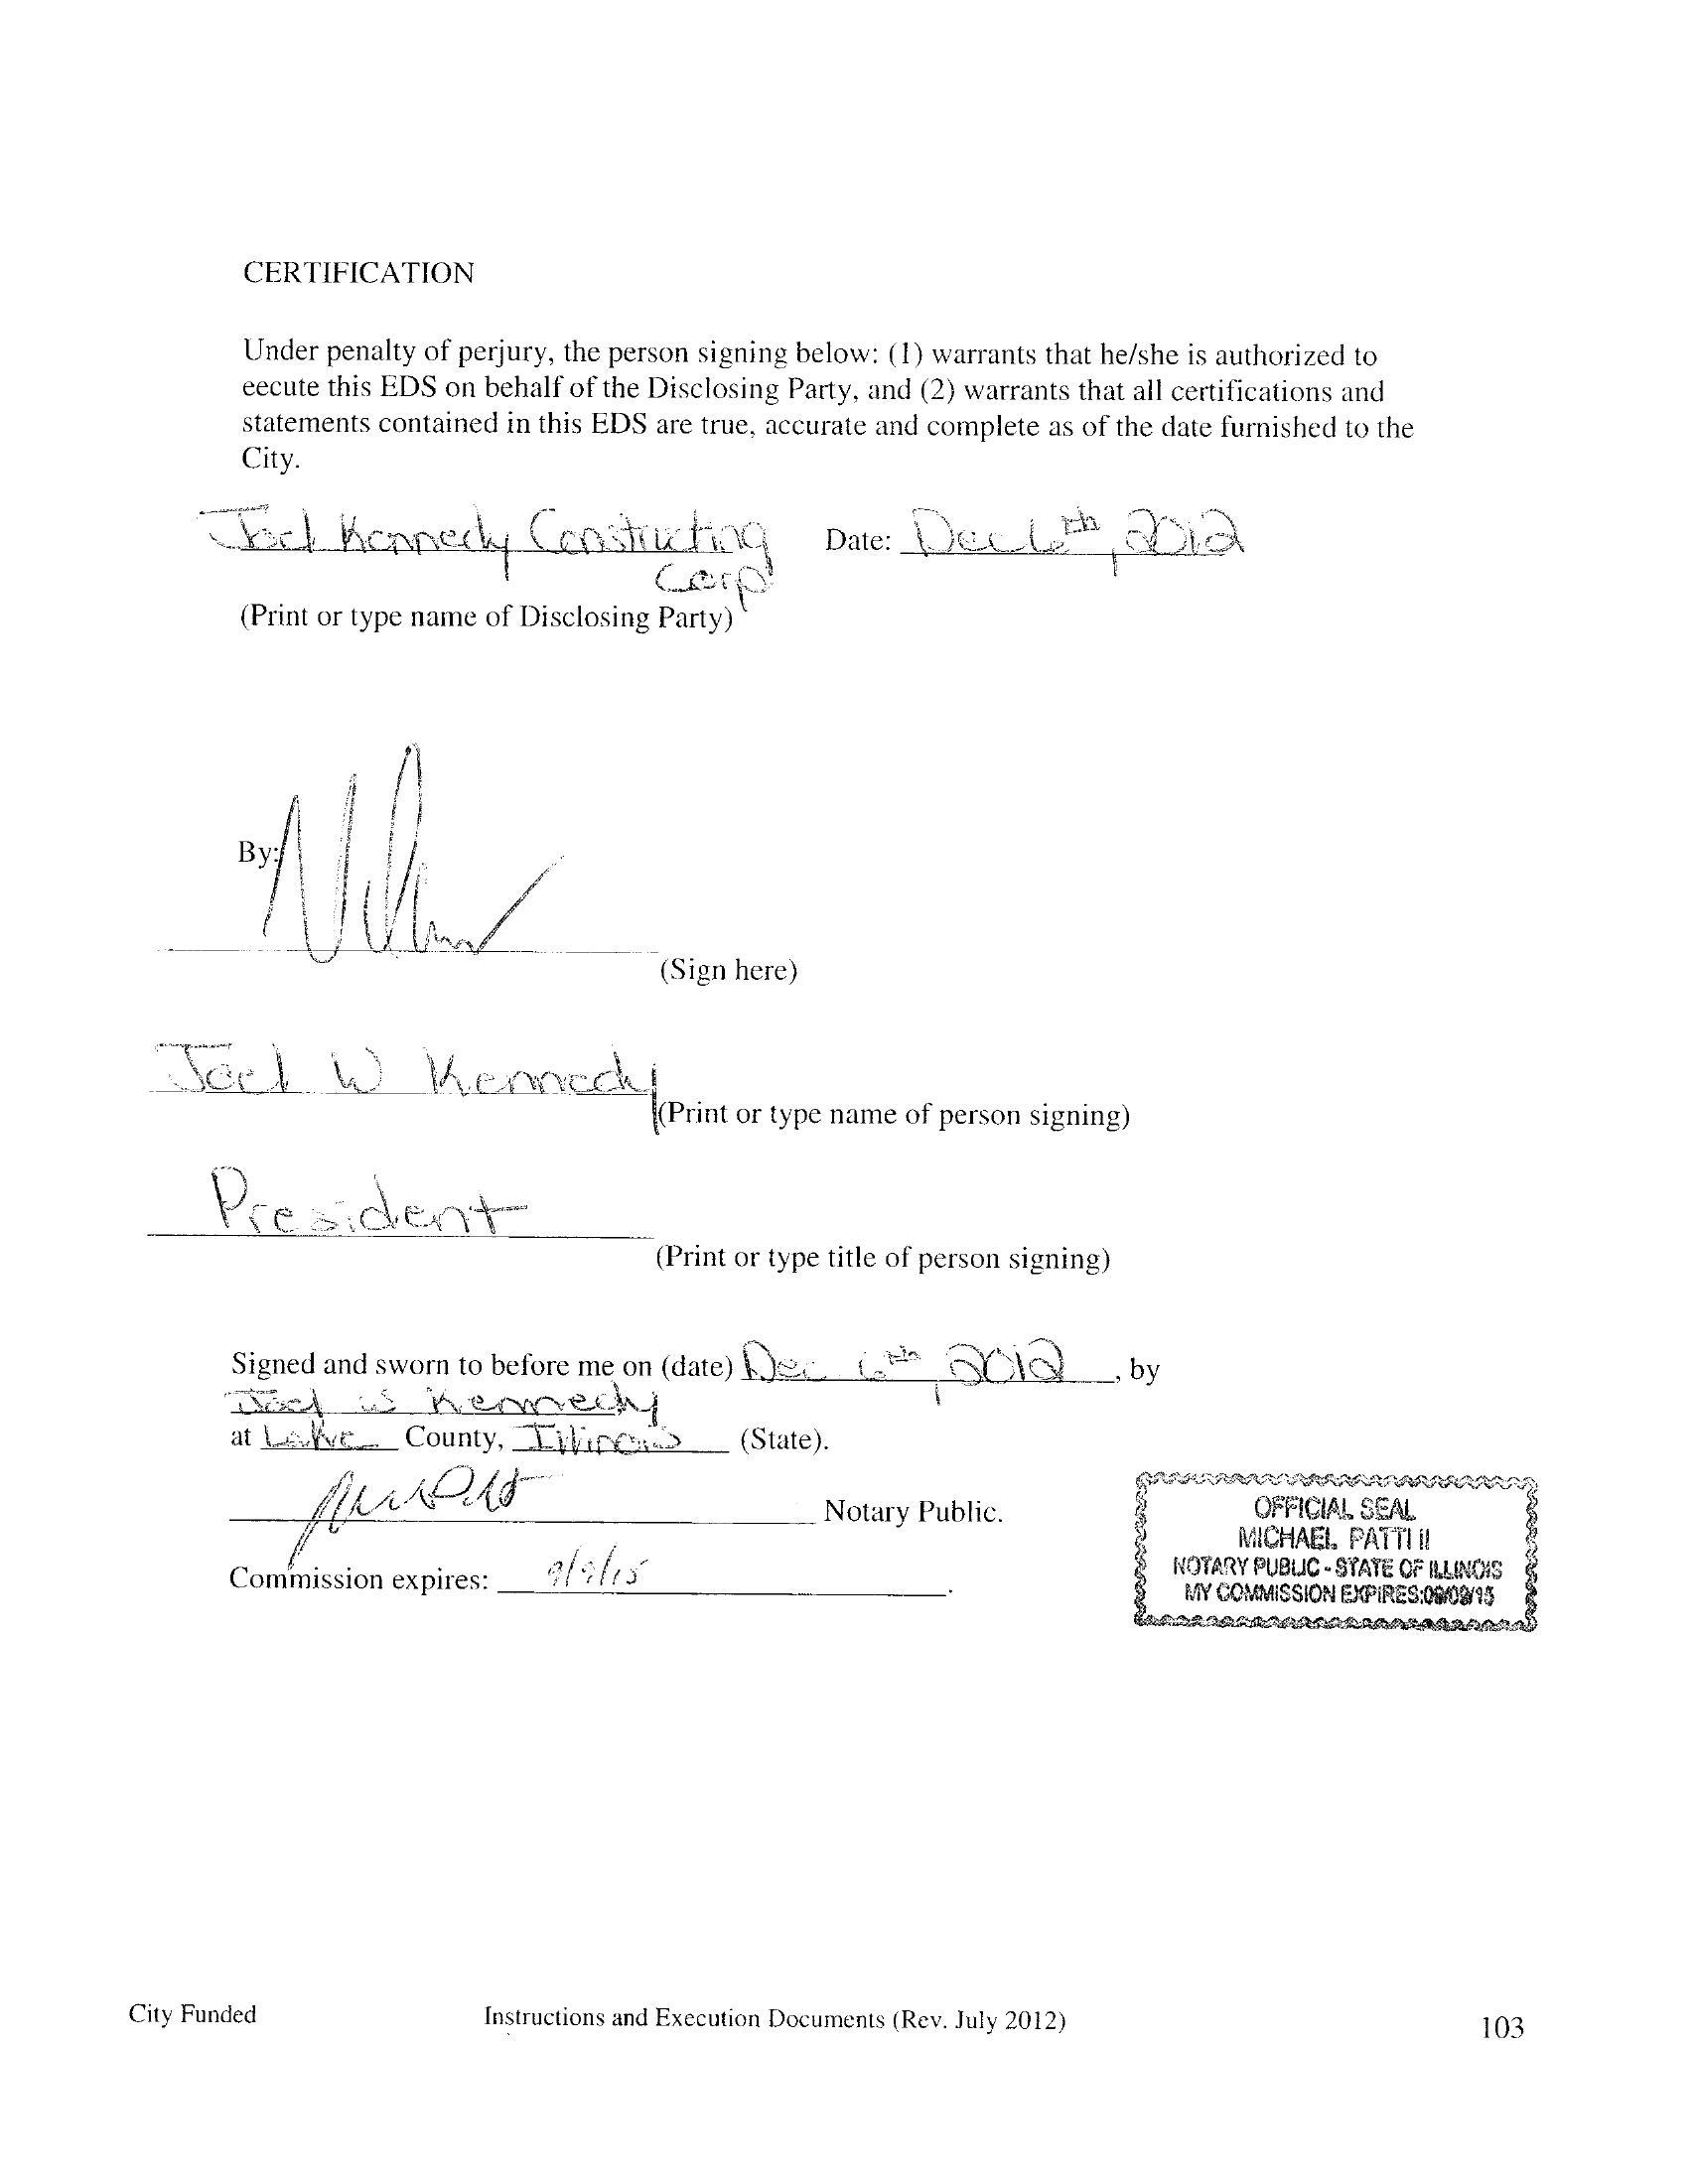 CERTIFICATION
Under penalty of perjury, the person signing below: (1) warrants that he/she is authorized to
eecute this EDS on behalf of the Disclosing Party, and (2) warrants that all certifications and
statements contained in this EDS are true, accurate and complete as of the date furnished to the
City.
Joel Kennedy Constructing Date: Dec 6th, 2012
Corp.
(Print or type name of Disclosing Party)
By:
(Sign here)
Joel W Kennedy
(Print or type name of person signing)
President
(Print or type title of person signing)
Signed and sworn to before me on (date) Dec 6th, 2012, by
Joel W Kennedy
at Lake County, Illinois (State).
Notary Public.
Commission expires: 9/9/15.
OFFICIAL SEAL
MICHAEL PATTI II
NOTARY PUBLIC - STATE OF ILLINOIS
MY COMMISSION EXPIRES:09/09/15
City Funded Instructions and Execution Documents (Rev. July 2012) 103